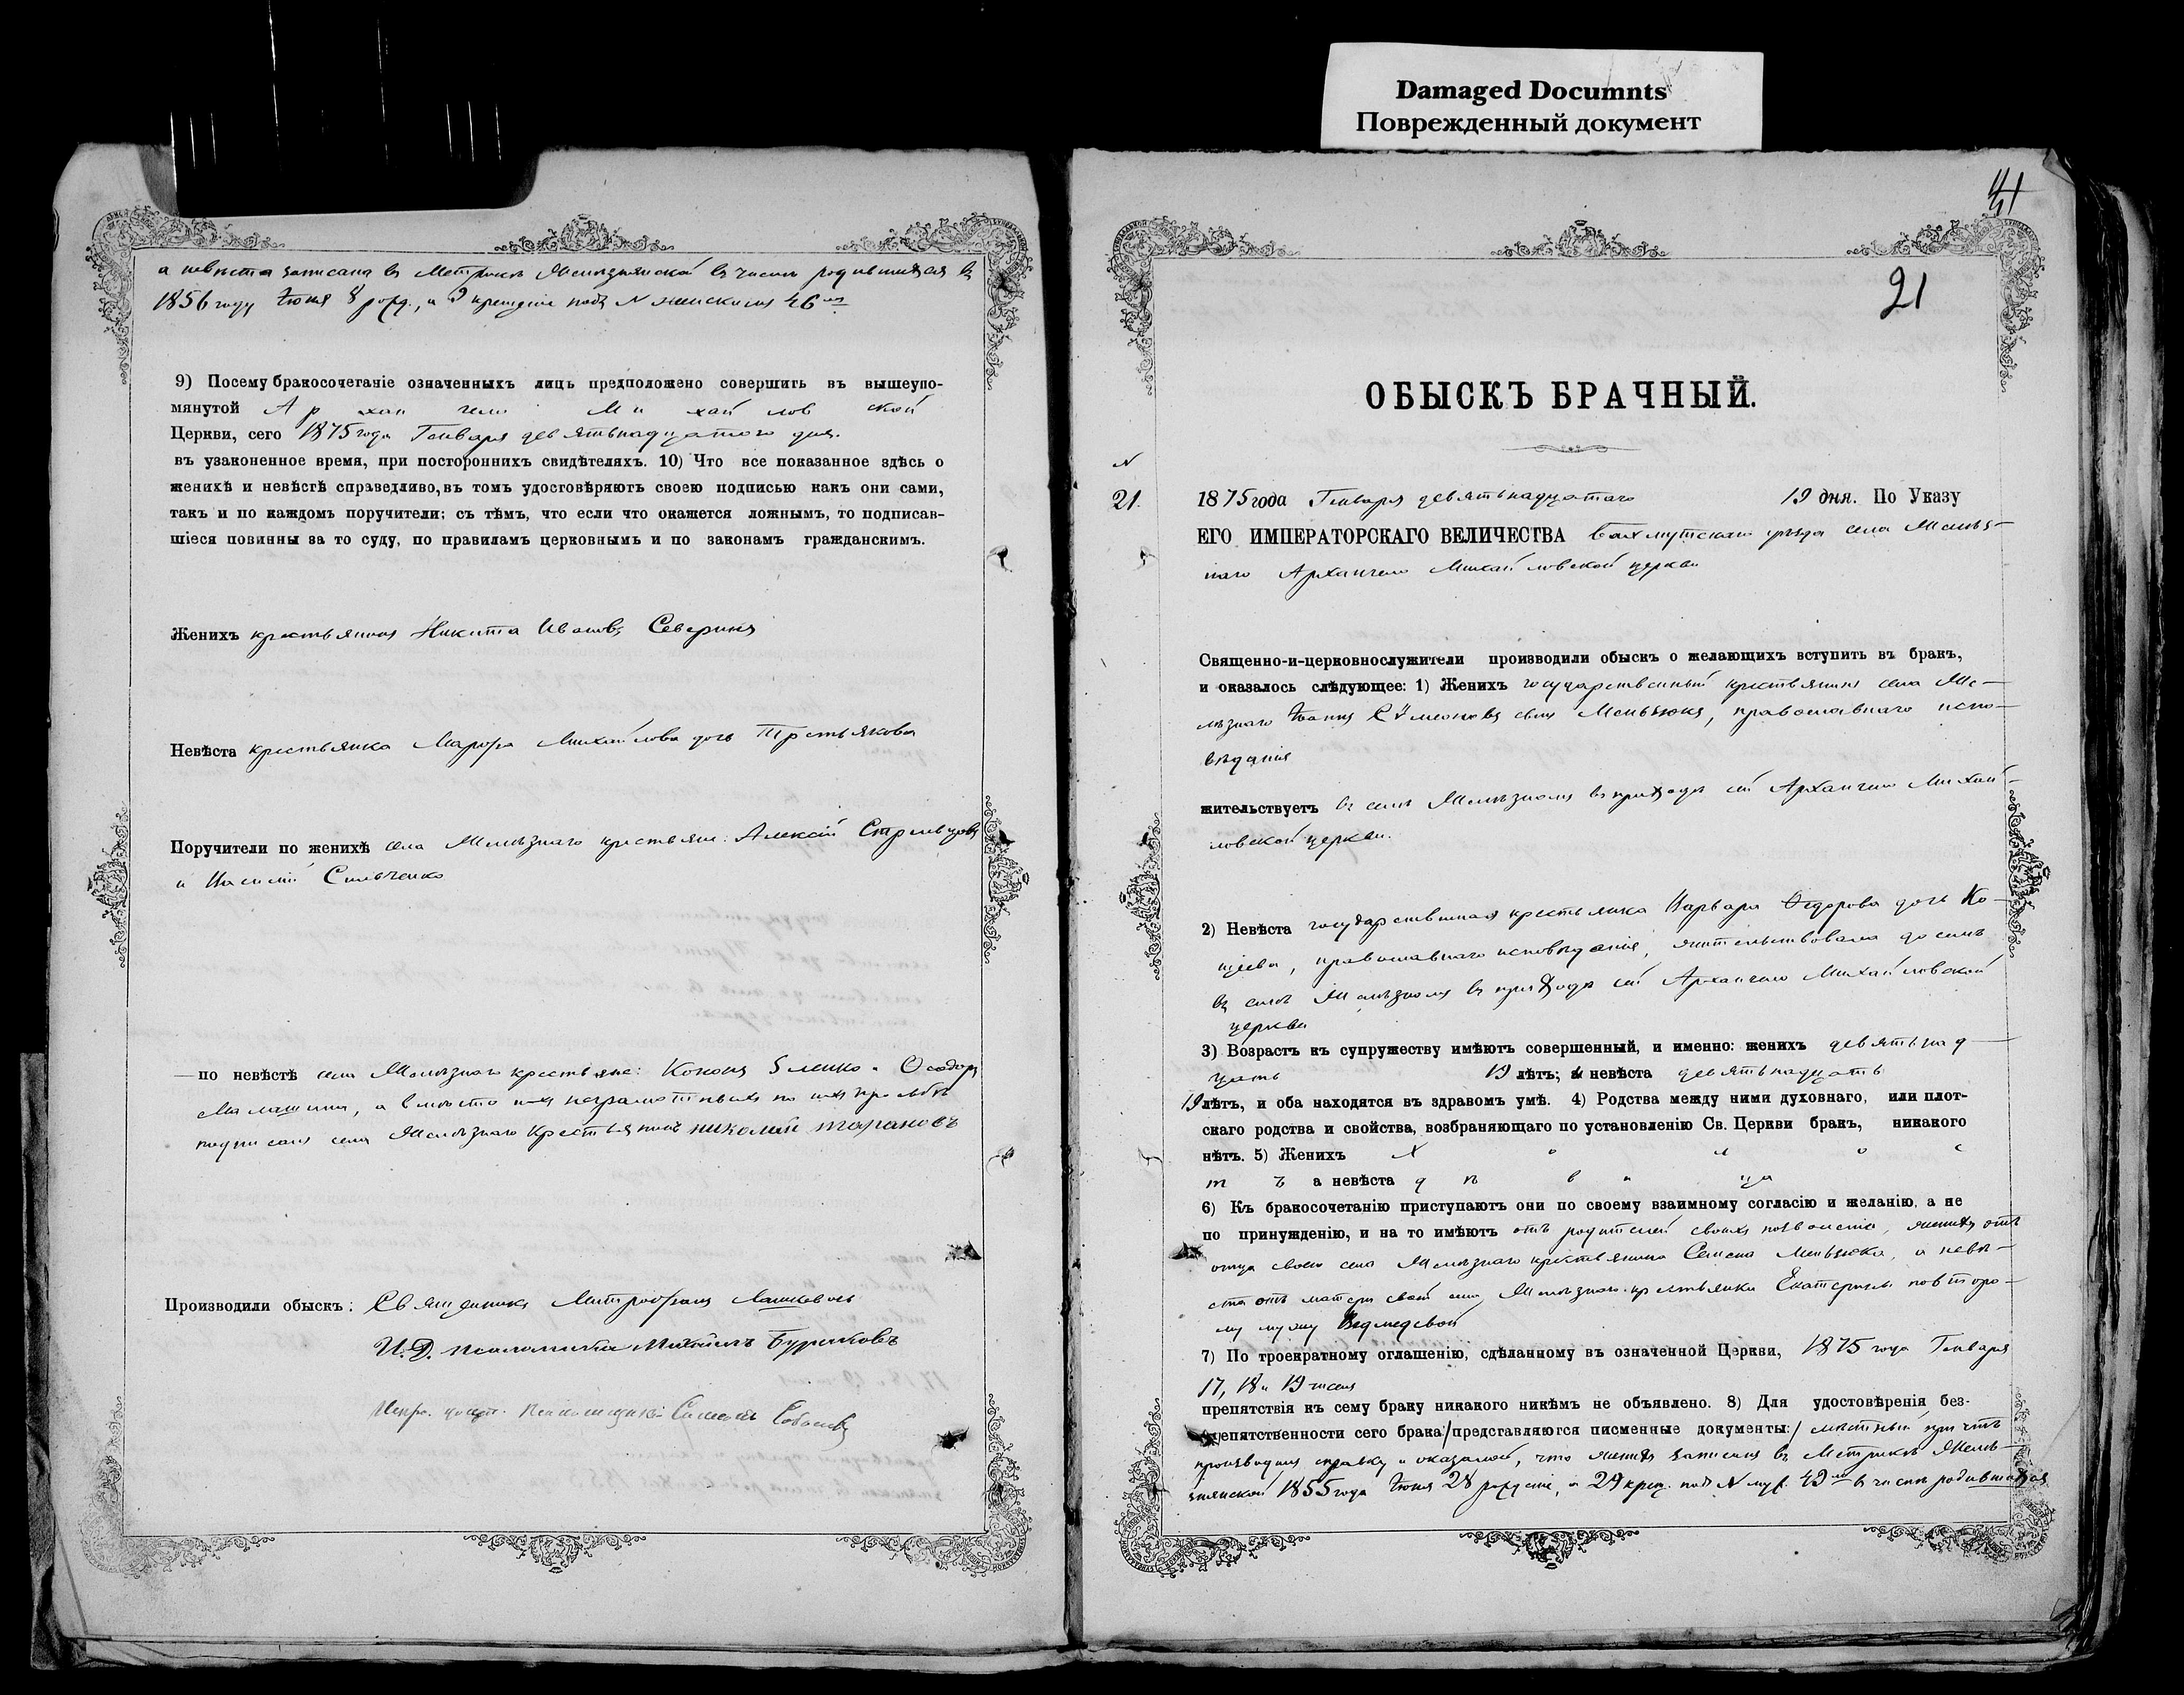 Damaged Documnts
Поврежденный документ
а невѣста записана въ Метрикѣ Желѣзнянской въ числѣ родившихся въ
1856 году Іюня 8 рожд., а 9 крещенія подъ N женскимъ 46мъ
9) Посему бракосочетаніе означенныхъ лицъ предположено совершить въ вышеупо-
мянутой Архангело Михайловской
Церкви, сего 1875 года Генваря девятьнадцатаго дня.
въ узаконенное время, при постороннихъ свидѣтеляхъ. 10) Что все показанное здѣсь о
женихѣ и невѣстѣ справедливо, въ томъ удостовѣряютъ своею подписью какъ они сами,
такъ и по каждомъ поручители; съ тѣмъ, что если что окажется ложнымъ, то подписав-
шіеся повинны за то суду, по правиламъ церковнымъ и по законамъ гражданскимъ.
Женихъ крестьянинъ Никита Ивановъ Северинъ
Невѣста крестьянка Марфа Михайлова дочь Третьякова
Поручители по женихѣ села Желѣзнаго крестьяне: Алексій Стрельцовъ
и Василій Сильченко
по невѣстѣ села Желѣзнаго крестьяне: Кононъ и Ѳеодоръ
а вмѣсто ихъ неграмотныхъ по ихъ прозьбѣ
подписалъ села Желѣзнаго Крестьянинъ николай тарановъ
Производили обыскъ: Священникъ Митрофанъ
И. Д. псаломщика Михаилъ Бурчиковъ
псаломщикъ Симеонъ
41
21
ОБЫСКЪ БРАЧНЫЙ.
N
21.
1875 года Генваря девятьнадцатаго 19 дня. По Указу
ЕГО ИМПЕРАТОРСКАГО ВЕЛИЧЕСТВА Бахмутскаго уѣзда села Желѣз-
наго Архангело Михайловской церкви
Священно-и-церковнослужители производили обыскъ о желающихъ вступить въ бракъ,
и оказалось слѣдующее: 1) Женихъ государственный крестьянинъ села Же-
лѣзнаго Іоаннъ Сѵмеоновъ сынъ Меньзюкъ, православнаго испо-
вѣданія
жительствуетъ въ селѣ Желѣзномъ въ приходѣ сей Архангело Михай-
ловской церкви.
2) Невѣста государственная крестьянка Варвара Ѳедорова дочь Ко-
щеева, православнаго исповѣданія, жительствовала до селѣ
въ селѣ Желѣзномъ въ приходѣ сей Архангело Михайловской
церкви
3) Возрастъ къ супружеству имѣютъ совершенный, и именно: женихъ девятьнад-
цать 19 лѣтъ; а невѣста девятьнадцать
19 лѣтъ, и оба находятся въ здравомъ умѣ. 4) Родства между ними духовнаго, или плот-
скаго родства и свойства, возбраняющаго по установленію Св. Церкви бракъ, никакого
нѣтъ. 5) Женихъ х о л о с
т ъ а невѣста д ѣ в и ца
6) Къ бракосочетанію приступаютъ они по своему взаимному согласію и желанію, а не
по принужденію, и на то имѣютъ отъ родителей своихъ позволеніе, женихъ отъ
отца своего села Желѣзнаго крестьянина Семена Меньзюка, а невѣ-
ста отъ матери своей села Желѣзнаго крестьянки Екатерины по второ-
му мужу Ведмедевой
7) По троекратному оглашенію, сдѣланному въ означенной Церкви, 1875 года Генваря
17, 18 и 19 числа
препятствія къ сему браку никакого никѣмъ не объявлено. 8) Для удостовѣренія без-
препятственности сего брака /представляются писменные документы:/ мѣстный причтъ
производилъ справку и оказалось, что женихъ записанъ въ Метрикѣ Желѣ-
знянской 1855 года Іюня 28 рожденіе, а 29 крещ. подъ N муж. 49мъ въ числѣ родившихся